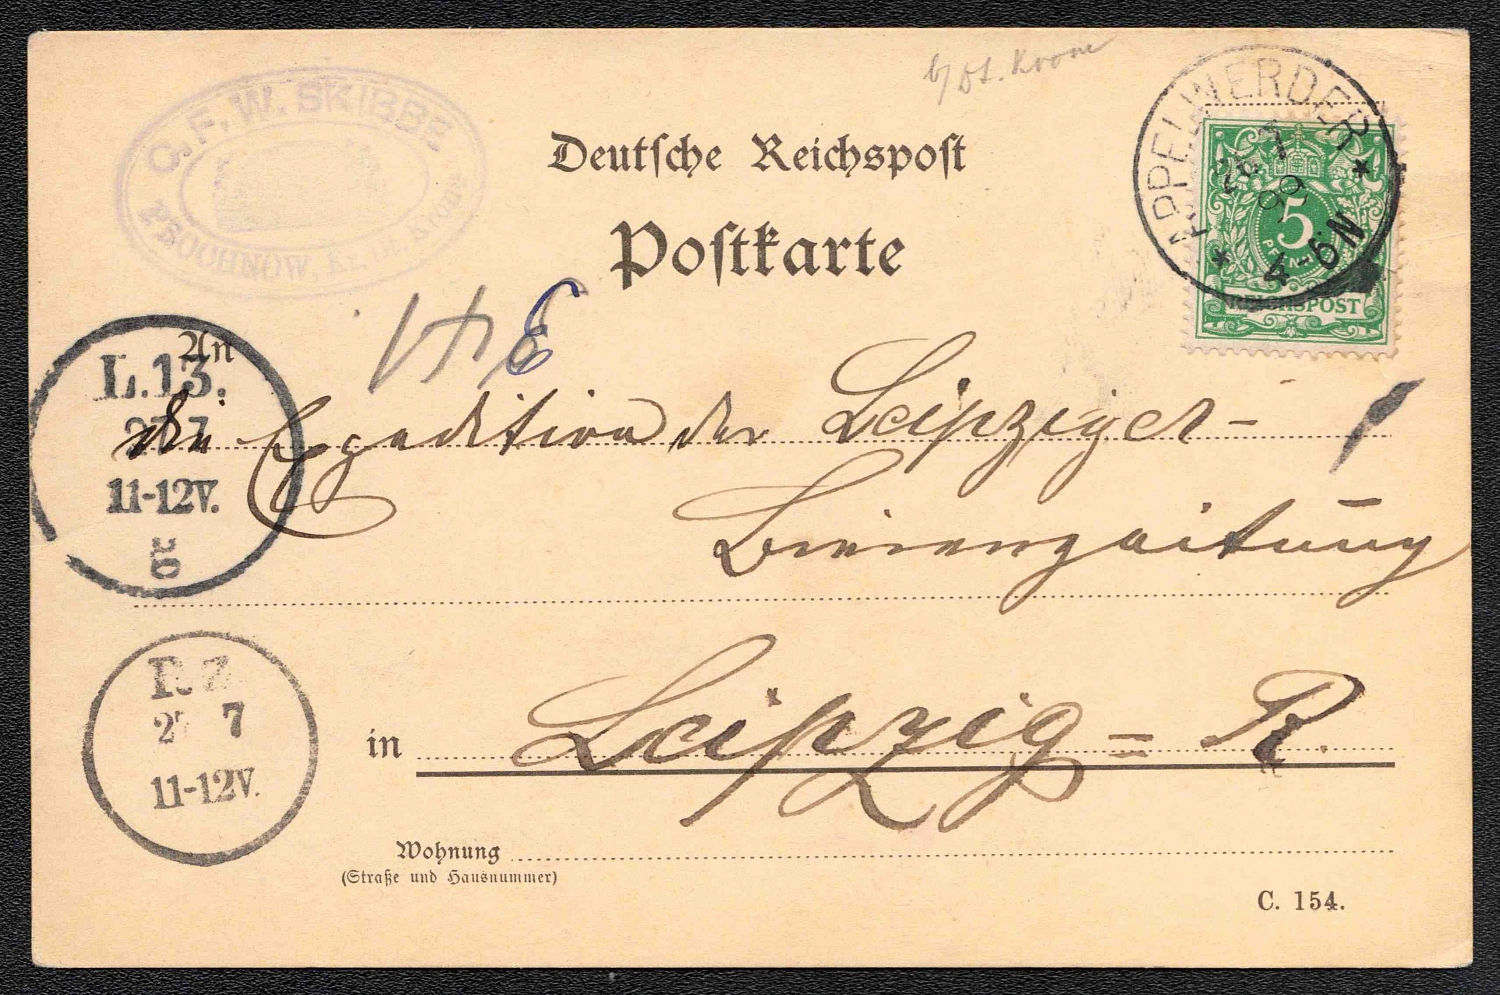 b/ Dt. Krone
C. F. W. SKIBBE
PROCHNOW, Kr. Dt. Krone
Deutsche Reichspost
Postkarte
APPELWERDER
26 7
99
4-6N
5
PFENNIG
REICHSPOST
An
L.13.
27 7
11-12V.
die Expedition der Leipziger-
Bienenzeitung
27 7
11-12V.
in Leipzig = R.
Wohnung
(Straße und Hausnummer)
C. 154.